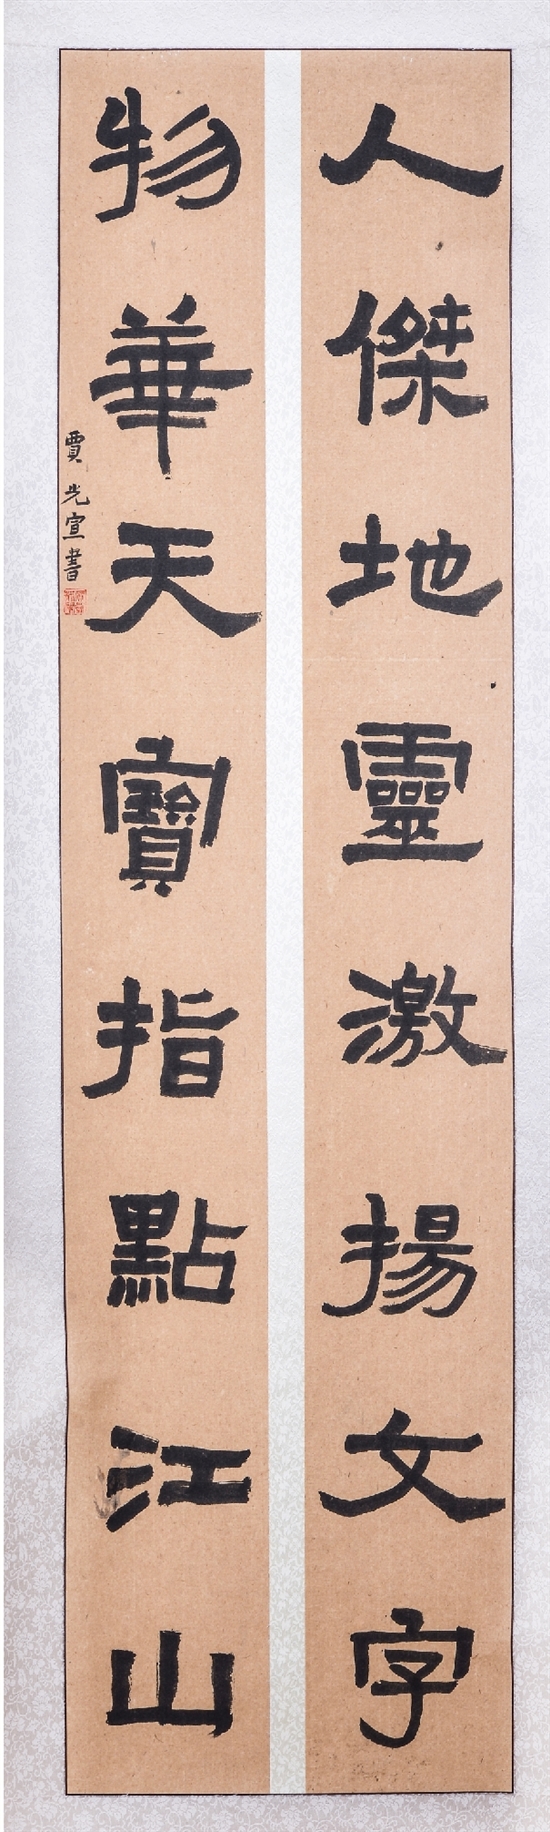 人傑地靈激揚文字
物華天寶指點江山
賈光宣書